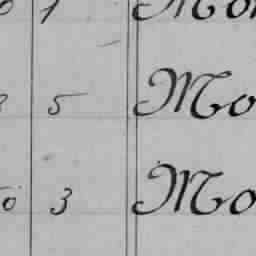 1 Mo
5 Mo
3 Mo